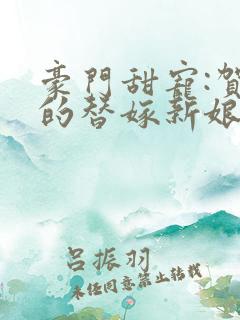 豪門甜寵:賀
的替嫁新娘
呂振羽
未经同意禁止转载